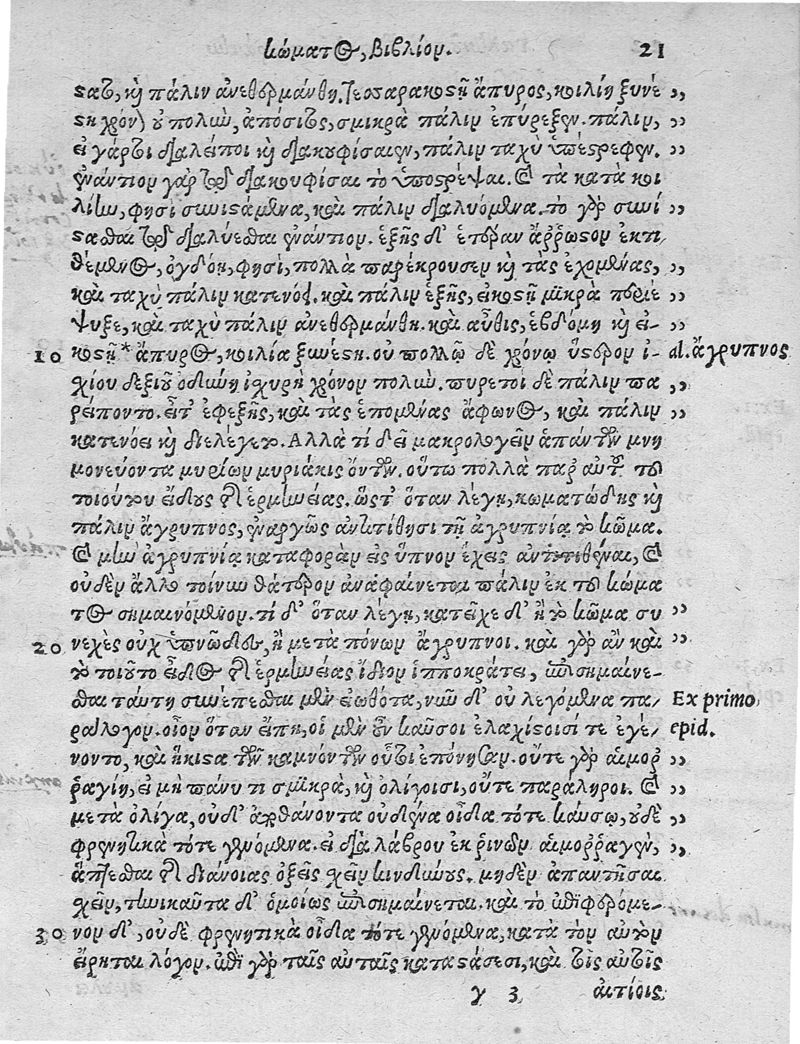 κώματος, βιβλίον. 21
σατο, καὶ πάλιν ἀνεθερμάνθη. Τεσσαρακοστῇ ἄπυρος, κοιλίη ξυνέ ,,
στη χρόνον οὐ πολὺν, ἀπόσιτος, σμικρὰ πάλιν ἐπύρεξεν. πάλιν, ,,
εἰ γάρ τοι διαλείποι καὶ διακουφίσαιεν, πάλιν ταχὺ ὑπέστρεφεν. ,,
ἐναντίον γὰρ τῷ διακουφίσαι τὸ ὑποστρέψαι. καὶ τὰ κατὰ κοι
λίην, φησὶ συνιστάμενα, καὶ πάλιν διαλυόμενα. τὸ γὰρ συνί ,,
στασθαι τῷ διαλύεσθαι ἐναντίον. ἑξῆς δ' ἕτερον ἄῤῥωστον ἐκτι
θέμενος, ὀγδόη, φησὶ, πολλὰ παρέκρουσεν καὶ τὰς ἐχομένας, ,,
καὶ ταχὺ πάλιν κατενόει. καὶ πάλιν ἑξῆς, εἰκοστῇ μικρὰ περιέ ,,
ψυξε, καὶ ταχὺ πάλιν ἀνεθερμάνθη. καὶ αὖθις, ἑβδόμη καὶ εἰ- ,,
10 κοστῇ * ἄπυρος, κοιλία ξυνέστη. οὐ πολλῷ δὲ χρόνῳ ὕστερον ἰ- al. ἄγρυπνος
χίου δεξιοῦ ὀδύνη ἰχυρὴ χρόνον πολὺν. πυρετοὶ δὲ πάλιν πα ,,
ρείποντο. εἶτ' ἐφεξῆς, καὶ τὰς ἑπομένας ἄφωνος, καὶ πάλιν ,,
κατενόει καὶ διελέγετο. Ἀλλὰ τί δεῖ μακρολογεῖν ἁπάντων μνη
μονεύοντα μυρίων μυριάκις ὄντων. οὕτω πολλὰ παρ' αὐτῷ τοῦ
τοιούτου εἴδους τῆς ἑρμηνείας. ὥστ' ὅταν λέγῃ, κωματώδης καὶ
πάλιν ἄγρυπνος, ἐναργῶς ἀντιτίθησι τῇ ἀγρυπνίᾳ τὸ κῶμα.
καὶ μὴν ἀγρυπνίᾳ καταφορὰν εἰς ὕπνον ἔχεις ἀντιτιθέναι, καὶ
οὐδὲν ἄλλο τοίνυν θάτερον ἀναφαίνεται πάλιν ἐκ τοῦ κώμα
τος σημαινόμενον. τί δ' ὅταν λέγῃ, κατεῖχε δ' ἢ τὸ κῶμα συ ,,
20 νεχὲς οὐχ ὑπνῶδες, ἢ μετὰ πόνων ἄγρυπνοι. καὶ γὰρ αὖ καὶ ,,
τὸ τοιοῦτο εἶδος τῆς ἑρμηνείας ἴδιον ἱπποκράτει, ἐπισημαίνε-
σθαι ταύτῃ συνέπεσθαι μὲν εἰωθότα, νῦν δ' οὐ λεγόμενα πα- Ex primo
ράλογον. οἷον ὅταν εἴπῃ, οἱ μὲν οὖν καῦσοι ἐλαχίστοισί τε ἐγέ- epid.
νοντο, καὶ ἥκιστα τῶν καμνόντων οὗτοι ἐπόνησαν. οὔτε γὰρ αἱμοῤ ,,
ῥαγίη, εἰ μὴ πάνυ τι σμικρὰ, καὶ ὀλίγοισι, οὔτε παράληροι. καὶ ,,
μετὰ ὀλίγα, οὐδ' ἀποθάνοντα οὐδένα οἶδα τότε καύσῳ, οὐδὲ ,,
φρενιτικὰ τότε γενόμενα. εἰ διὰ λάβρου ἐκ ῥινῶν αἱμοῤῥαγεῖν, ,,
ἅπτεσθαι τῆς διάνοιας ὀξεῖς ἔχειν κινδύνους. μηδὲν ἀπαντῆσαι
ἔχειν, τηνικαῦτα δ' ὁμοίως ἐπισημαίνεται. καὶ τὸ ἐπιφερόμε-
30 νον δ', οὐδὲ φρενητικὰ οἶδα τότε γενόμενα, κατὰ τὸν αὐτὸν
εἴρηται λόγον. ἐπὶ γὰρ ταῖς αὐταῖς καταστάσεσι, καὶ τοῖς αὐτοῖς
γ 3 αἰτίοις